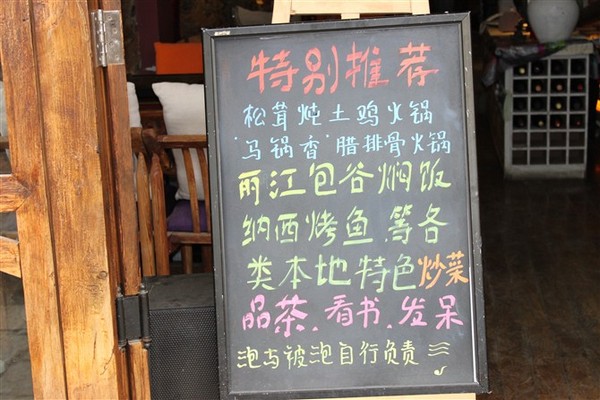 特别推荐
松茸炖土鸡火锅
"马锅香"腊排骨火锅
丽江包谷焖饭
纳西烤鱼.等各
类本地特色炒菜
品茶.看书.发呆
泡与被泡自行负责